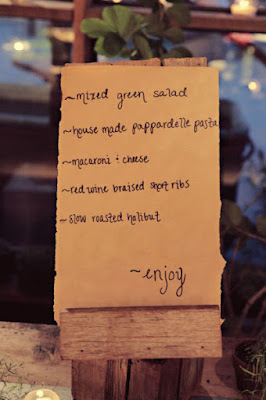 ~mixed green salad
~house made pappardelle pasta
~macaroni & cheese
~red wine braised short ribs
~slow roasted halibut
~enjoy